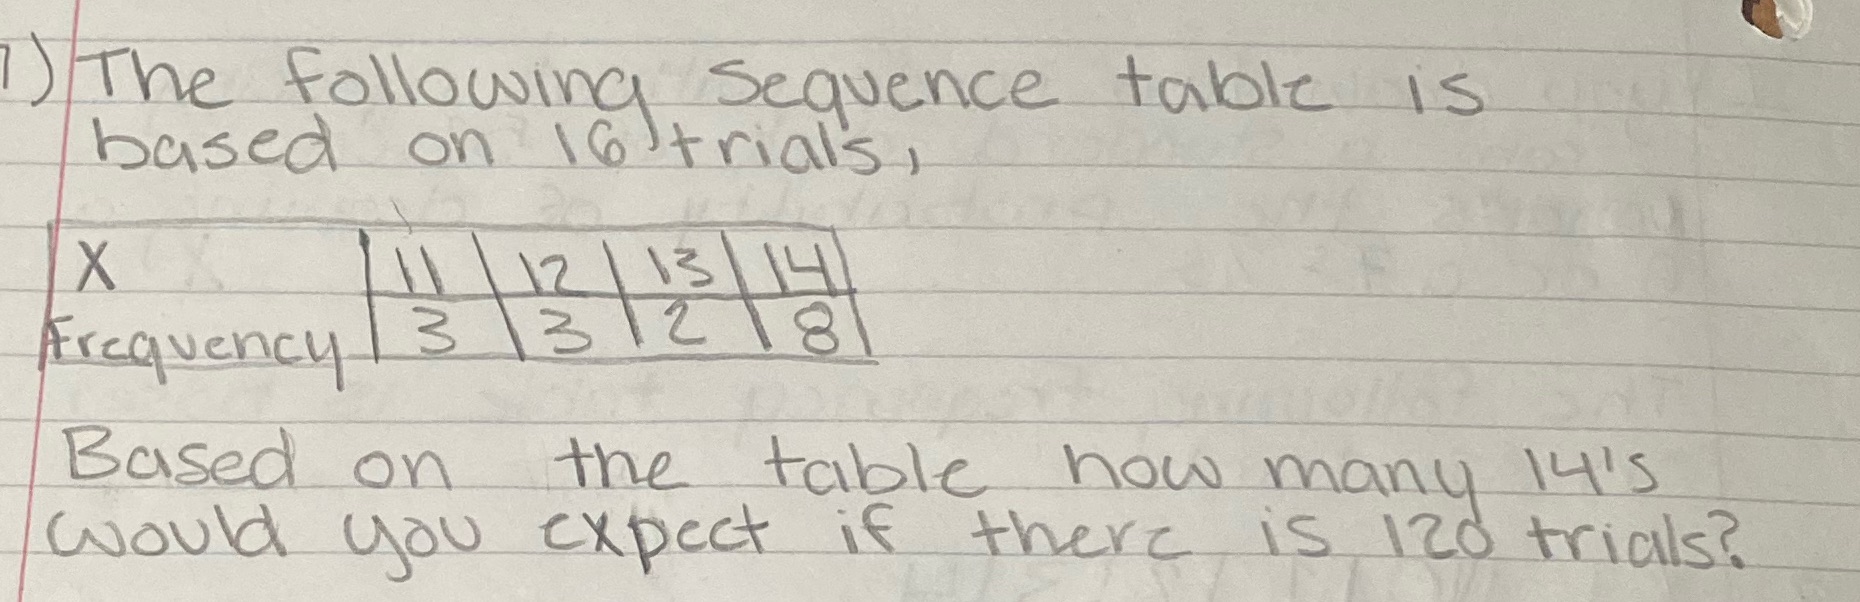 1) The following Sequence table is
based on 16 trials,
X 11 12 13 14
Frequency 3 3 2 8
Based on the table how many 14's
would you expect if there is 120 trials?